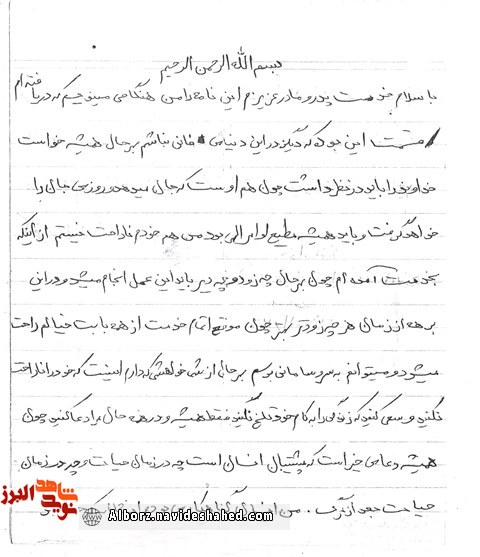 بسم الله الرحمن الرحیم
با سلام خدمت پدر و مادر عزیزم این نامه را من هنگامی مینویسم که دریافته‌ام
قسمت این بود که دیگر در این دنیای فانی نباشم بهر حال همیشه خواست
خداوند را باید در نظر داشت چون هم اوست که جان میدهد و روزی جان را
خواهد گرفت و باید همیشه مطیع اوامر الهی بود من هم خودم ناراحت نیستم از اینکه
بخدمت آمده‌ام چون بهر حال چه زود و چه دیر باید این عمل انجام میشد و در این
برهه از زمان هر چه زودتر بهتر چون موقع اتمام خدمت از همه بابت خیالم راحت
میشود و میتوانم به سر و سامانی برسم بهر حال از شما خواهشی که دارم اینست که خود را ناراحت
نکنید و سعی کنید که زندگی را به کام خود تلخ نکنید فقط همیشه و در همه حال مرا دعا کنید چون
همیشه دعای خیر است که پشتیبان انسان است چه در زمان حیات و چه در زمان
حیات بعد از مرگ. من
شاهد
نوید
البرز
Alborz.navideshahed.com